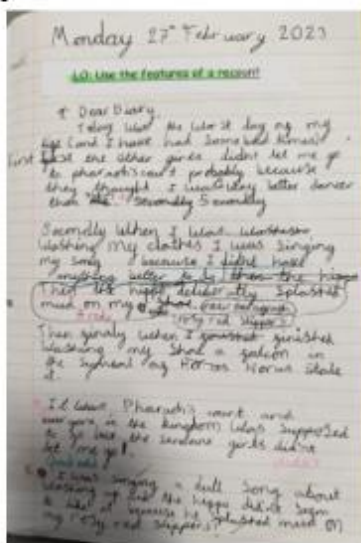 Monday 27th February 2023
LO: Use the features of a recount
Dear Diary,
Today was the worst day of my
life (and I have had some bad times)
First the other girls didnt let me go
to pharaoh's court probably because
they thought I was way better dancer
than Secondly
Secondly when I was
Washing my clothes I was singing
my song because I didnt have
anything better to do then the hippo
Then the hippo deliberatly splashed
mud on my shoe. (new paragraph
rosy red slippers
Then finaly when I finished
washing my shoe a falcon
the symbeal of Horos Horus stole
it.
It was Pharaoh's court and
everyone in the kingdom was supposed
to go but the servant girls didn't
let me go!
I was singing a dull song about
washing up and the hippo didn't seem
to like it because he splashed mud on
my rosy red slippers!